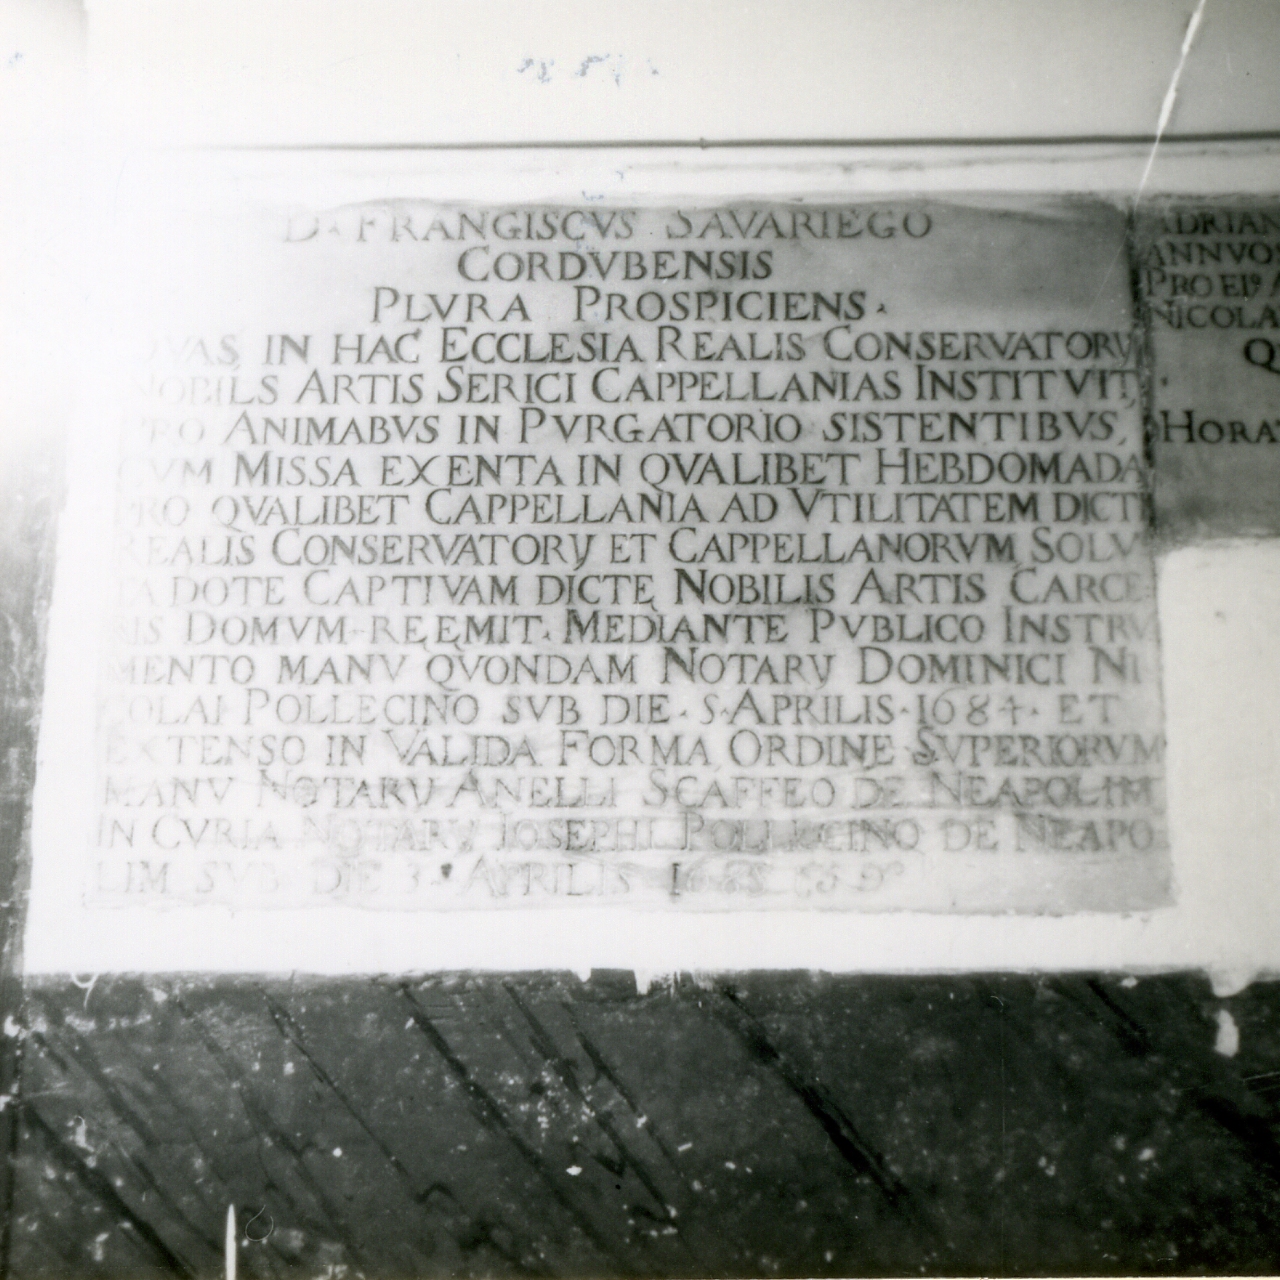 D. FRANCISCVS SAVARIEGO
CORDVBENSIS
PLVRA PROSPICIENS.
QVAS, IN HAC ECCLESIA REALIS CONSERVATORY
NOBILS ARTIS SERICI CAPPELLANIAS INSTITVIT,
PRO ANIMABVS IN PVRGATORIO SISTENTIBVS,
CVM MISSA EXENTA IN QVALIBET HEBDOMADA
PRO QVALIBET CAPPELLANIA AD VTILITATEM DICTI
REALIS CONSERVATORY ET CAPPELLANORVM SOLV
TA DOTE CAPTIVAM DICTE NOBILIS ARTIS CARCE
RIS DOMVM REEMIT. MEDIANTE PVBLICO INSTRV
MENTO MANV QVONDAM NOTARY DOMINICI NI
COLAI POLLECINO SVB DIE. 5. APRILIS. 1684. ET
EXTENSO IN VALIDA FORMA ORDINE SVPERIORVM
MANV NOTARY ANELLI SCAFFEO DE NEAPOLIM
IN CVRIA NOTARY IOSEPHI POLLECINO DE NEAPO
LIM SVB DIE 3. APRILIS
ADRIAN
ANNVO
PRO EI
NICOLA
Q
HORA